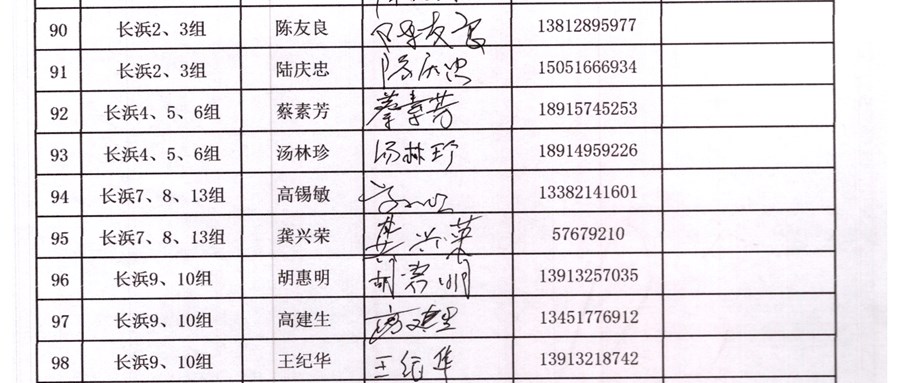 90 长浜2、3组 陈友良 陈友良 13812895977
91 长浜2、3组 陆庆忠 陆庆忠 15051666934
92 长浜4、5、6组 蔡素芳 蔡素芳 18915745253
93 长浜4、5、6组 汤林珍 汤林珍 18914959226
94 长浜7、8、13组 高锡敏 13382141601
95 长浜7、8、13组 龚兴荣 龚兴荣 57679210
96 长浜9、10组 胡惠明 胡惠明 13913257035
97 长浜9、10组 高建生 高建生 13451776912
98 长浜9、10组 王纪华 王纪华 13913218742